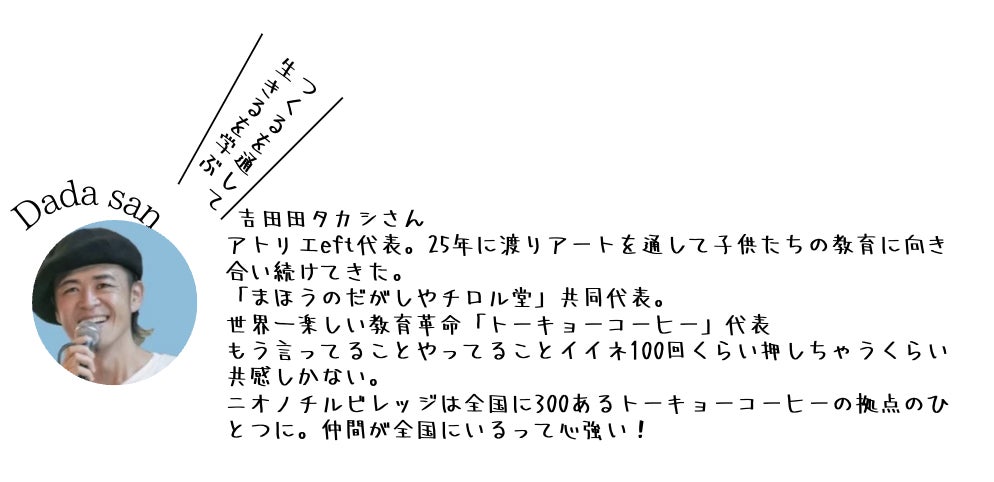 つくるを通して
生きるを学ぶ
Dada san
吉田田タカシさん
アトリエeft代表。25年に渡りアートを通して子供たちの教育に向き
合い続けてきた。
「まほうのだがしやチロル堂」共同代表。
世界一楽しい教育革命「トーキョーコーヒー」代表
もう言ってることやってることイイネ100回くらい押しちゃうくらい
共感しかない。
ニオノチルビレッジは全国に300あるトーキョーコーヒーの拠点のひ
とつに。仲間が全国にいるって心強い！